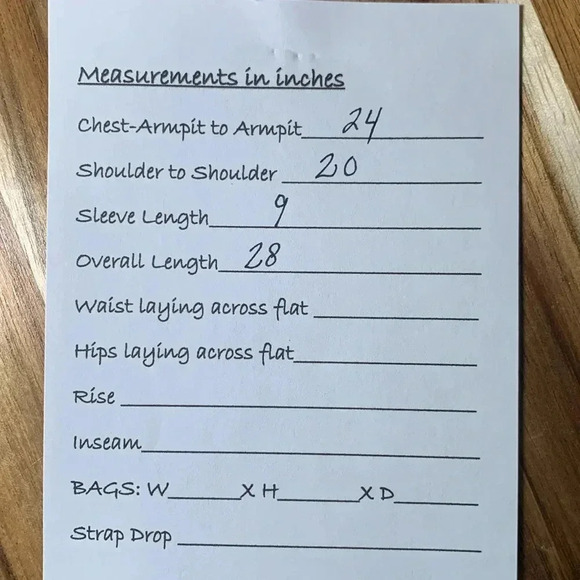 Measurements in inches
Chest-Armpit to Armpit 24
Shoulder to Shoulder 20
Sleeve Length 9
Overall Length 28
Waist laying across flat
Hips laying across flat
Rise
Inseam
BAGS: W______X H______X D______
Strap Drop